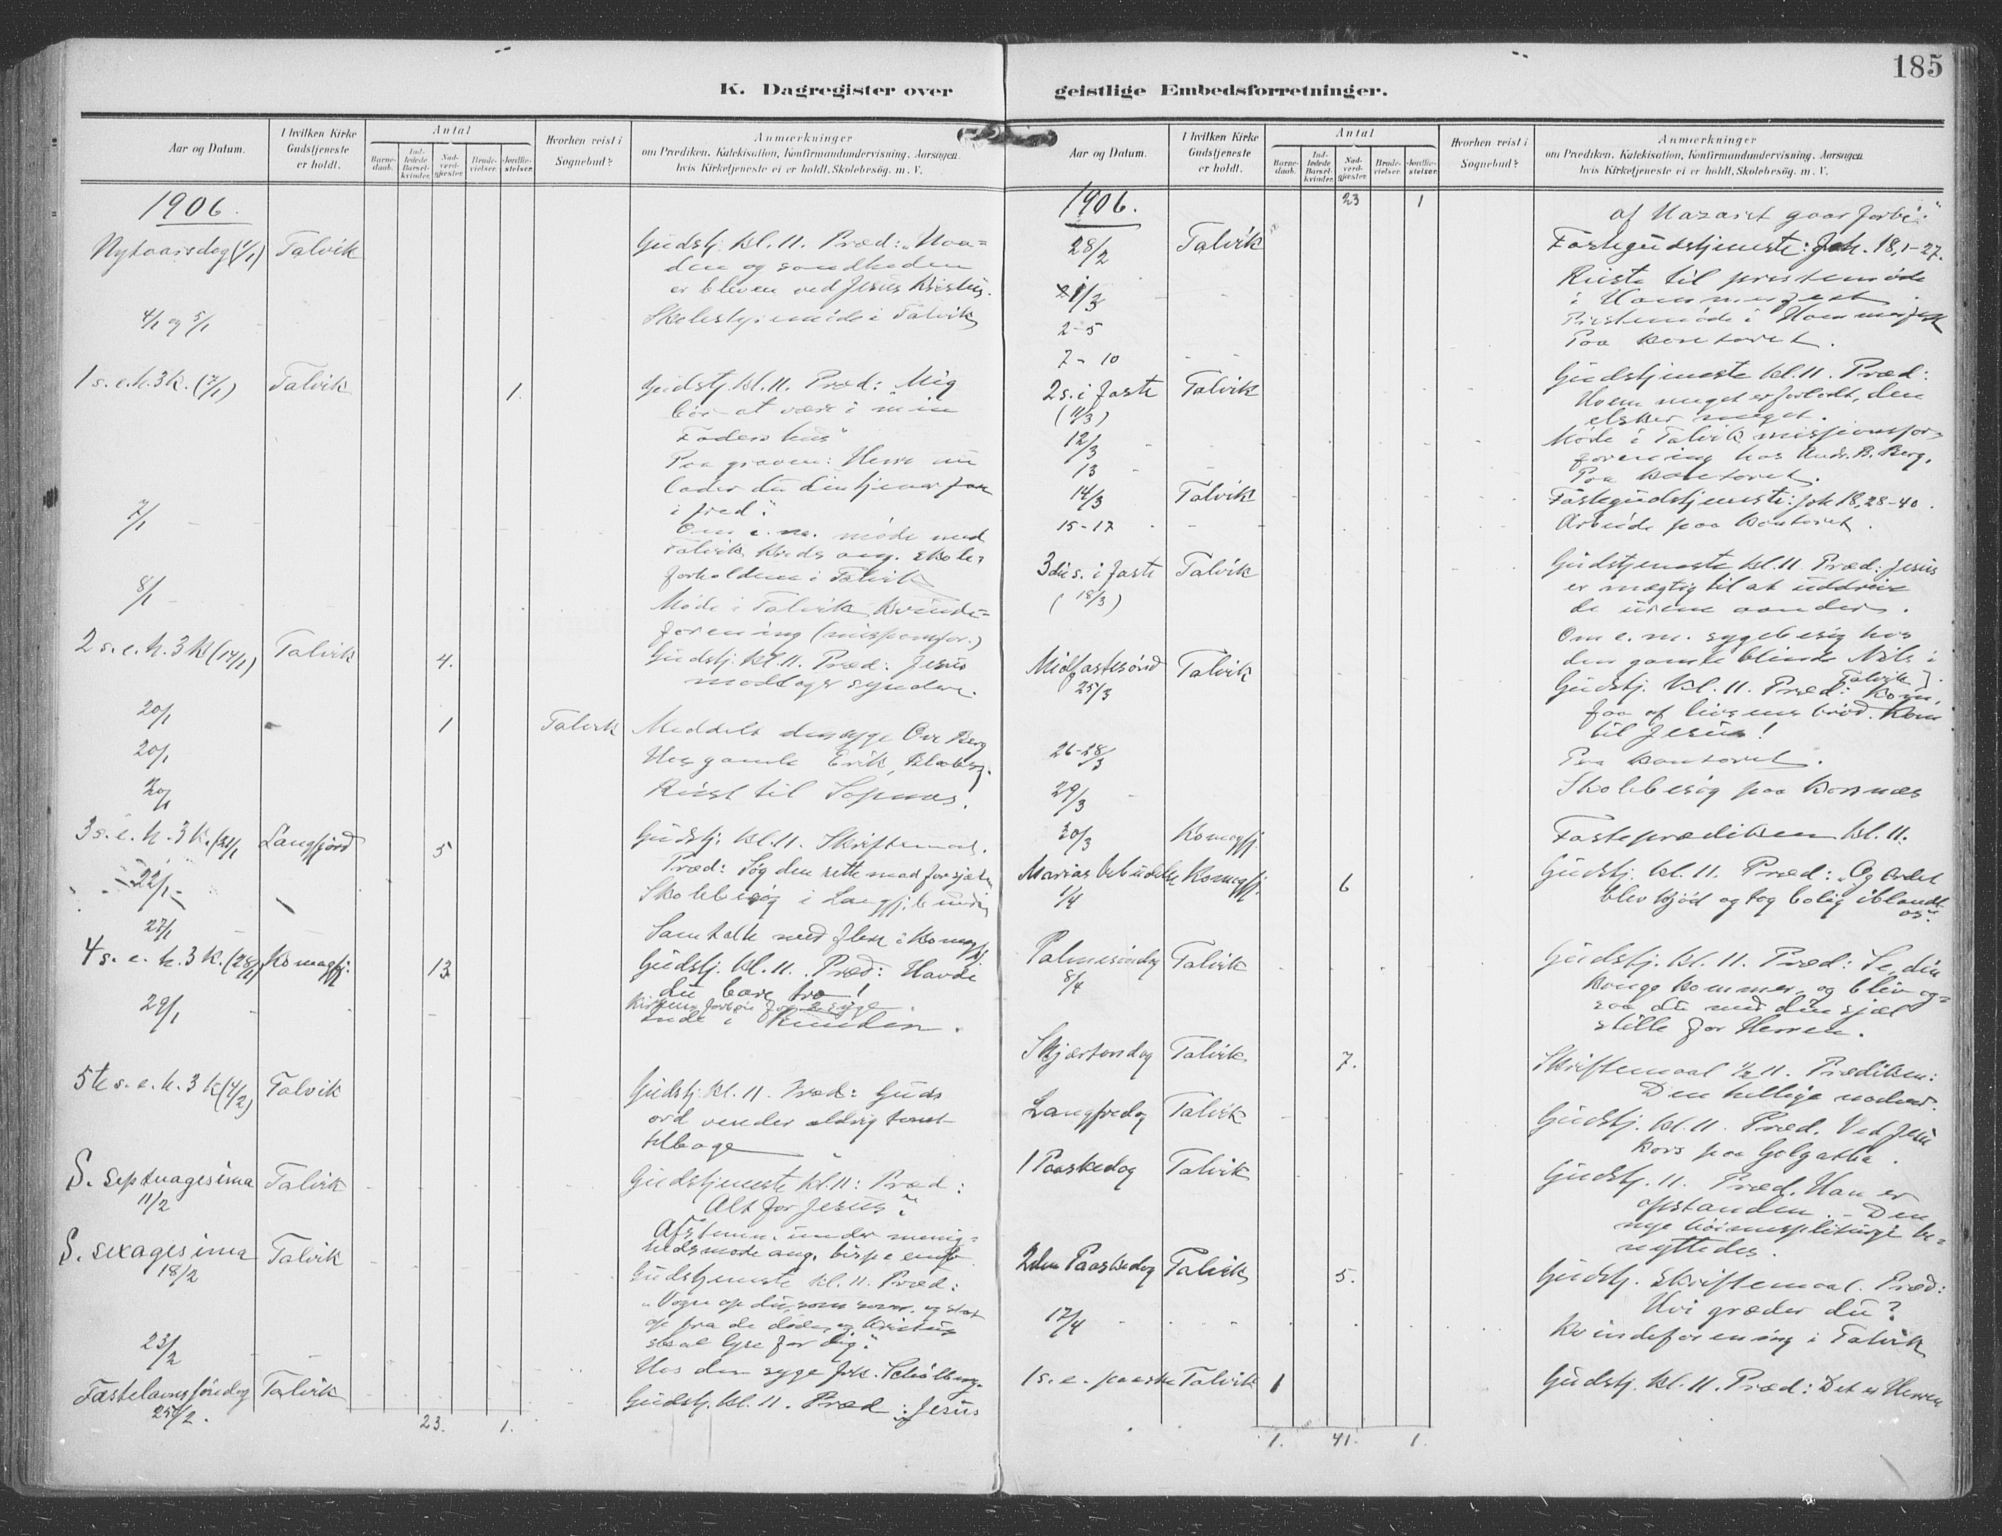 185
K. Dagregister over geistlige Embedsforretninger.
Aar og Datum.
I hvilken Kirke Gudstjeneste er holdt.
Antal
Barne-daab.
Ind-ledede Barsel-kvinder.
Nad-verd-gjester.
Brude-vielser.
Jordfæ-stelser.
Hvorhen reist i Sognebud?
Anmærkninger
om Prædiken, Katekisation, Konfirmandundervisning, Aarsagen,
hvis Kirketjeneste ei er holdt, Skolebesøg, m. V.
1906.
Nytaarsdag (1/1) Talvik Gudstj. kl. 11. Præd: "Naa-
den og sandheden
er bleven ved Jesus Kristus.
4/1 og 5/1 Skolestyremøde i Talvik
1 s. e. h. 3 k. (7/1) Talvik 1. Gudstj. kl. 11. Præd: Mig
bør at være i min
Faders hus"
Paa graven: Herre nu
lader du din tjener fare
i fred".
7/1 Om e. m. møde med
Talvik kreds ang. skole-
forholdene i Talvik
8/1 Møde i Talvik kvinde-
forening (misjonsfor.)
2 s. e. h. 3 k (14/1) Talvik 4. Gudstj. kl. 11. Præd: Jesus
modtager syndere.
20/1 1 Talvik Meddelt den syge Ove Berg
20/1 Hos gamle Erik,
20/1 Reist til Sopnæs.
3 s. e. h. 3 k. (21/1) Langfjord 5 Gudstj. kl. 11. Skriftemaal.
Præd: Søg den rette mad for sjælen
22/1 Skolebesøg i Langfj.bunden
27/1 Samtale med flere i Komagfj.
4 s. e. h. 3 k. (28/1) Komagfj. 13 Gudstj. kl. 11. Præd: Havde
du bare tro!
29/1 for 2 syge
inde i
5te s. e. h. 3 k (4/2) Talvik Gudstj. kl. 11. Præd: Guds
ord vender aldrig tomt
tilbage
S. septuagesima Talvik Gudstjeneste kl. 11: Præd:
11/2 Alt for Jesus".
Afstemn. under menig-
hedsmøde ang. bispe
S. sexagesima Talvik Gudstjeneste kl. 11. Præd:
18/2 "Vogn op du, som sover, og stat
op fra de døde, og Kristus
skal lyse for dig".
23/2 Hos den syge Joh.
Fastelavnssøndag Talvik Gudstj. kl. 11. Præd: "Jesus
25/2.
23. 1.
Aar og Datum.
I hvilken Kirke Gudstjeneste er holdt.
Antal
Barne-daab.
Ind-ledede Barsel-kvinder.
Nad-verd-gjester.
Brude-vielser.
Jordfæ-stelser.
Hvorhen reist i Sognebud?
Anmærkninger
om Prædiken, Katekisation, Konfirmandundervisning, Aarsagen
hvis Kirketjeneste ei er holdt, Skolebesøg, m. V.
1906. 23 1 af Nazaret gaar forbi".
28/2 Talvik Fastegudstjeneste: Joh. 18, 1-27.
1/3 Reiste til prestemøde
i Hammerfest
2-5 Prestemøde i Hammerfest
7-10 Paa kontoret.
2 s. i faste Talvik Gudstjeneste kl. 11. Præd:
(11/3) Hvem meget er forladt, den
elsker meget.
12/3 Møde i Talvik misjonsfor-
forening hos Andr. B. Berg.
13 Paa kontoret.
14/3 Talvik Fastegudstjeneste: Joh 18, 28-40.
15-17 Arbeide paa kontoret.
3die s. i faste Talvik Gudstjeneste kl. 11 Præd: Jesus
(18/3) er mægtig til at uddrive
de urene aander.
Om e. m. sygebesøg hos
den gamle blinde Nils i
Talvik.
Midfastesønd Talvik Gudstj. kl. 11. Præd: Kom,
25/3 faa af livsens brød. Kom
til Jesus!
26-28/3 Paa kontoret.
29/3 Skolebesøg paa Korsnæs
30/3 Komagfj. Fasteprædiken kl. 11.
Marias bebudelse Komagfj. 6 Gudstj. kl. 11. Præd: "Og ordet
1/4 blev kjød og tog bolig iblandt
os"
Palmesøndag Talvik Gudstj. kl. 11. Præd: Se, din
8/4 konge kommer, og bliv og-
saa du med din sjæl
stille for Herren.
Skjærtorsdag Talvik 7. Skriftemaal 1/2 11. Prædiken:
Den hellige nadverd.
Langfredag Talvik Gudstj. kl. 11. Præd. Ved Jesu
kors paa Golgatha.
1 Paaskedag Talvik Gudstj. 11. Præd. Han er
opstanden. - Den
nye høimesseliturgi be-
nyttedes.
2den Paaskedag Talvik 5. Gudstj. Skriftemaal. Præd:
Hvi græder du?
17/4 Kvindeforening i Talvik
1 s. e. paaske Talvik 1 Gudstj. kl. 11. Præd: Det er Herren
1. 41. 1.